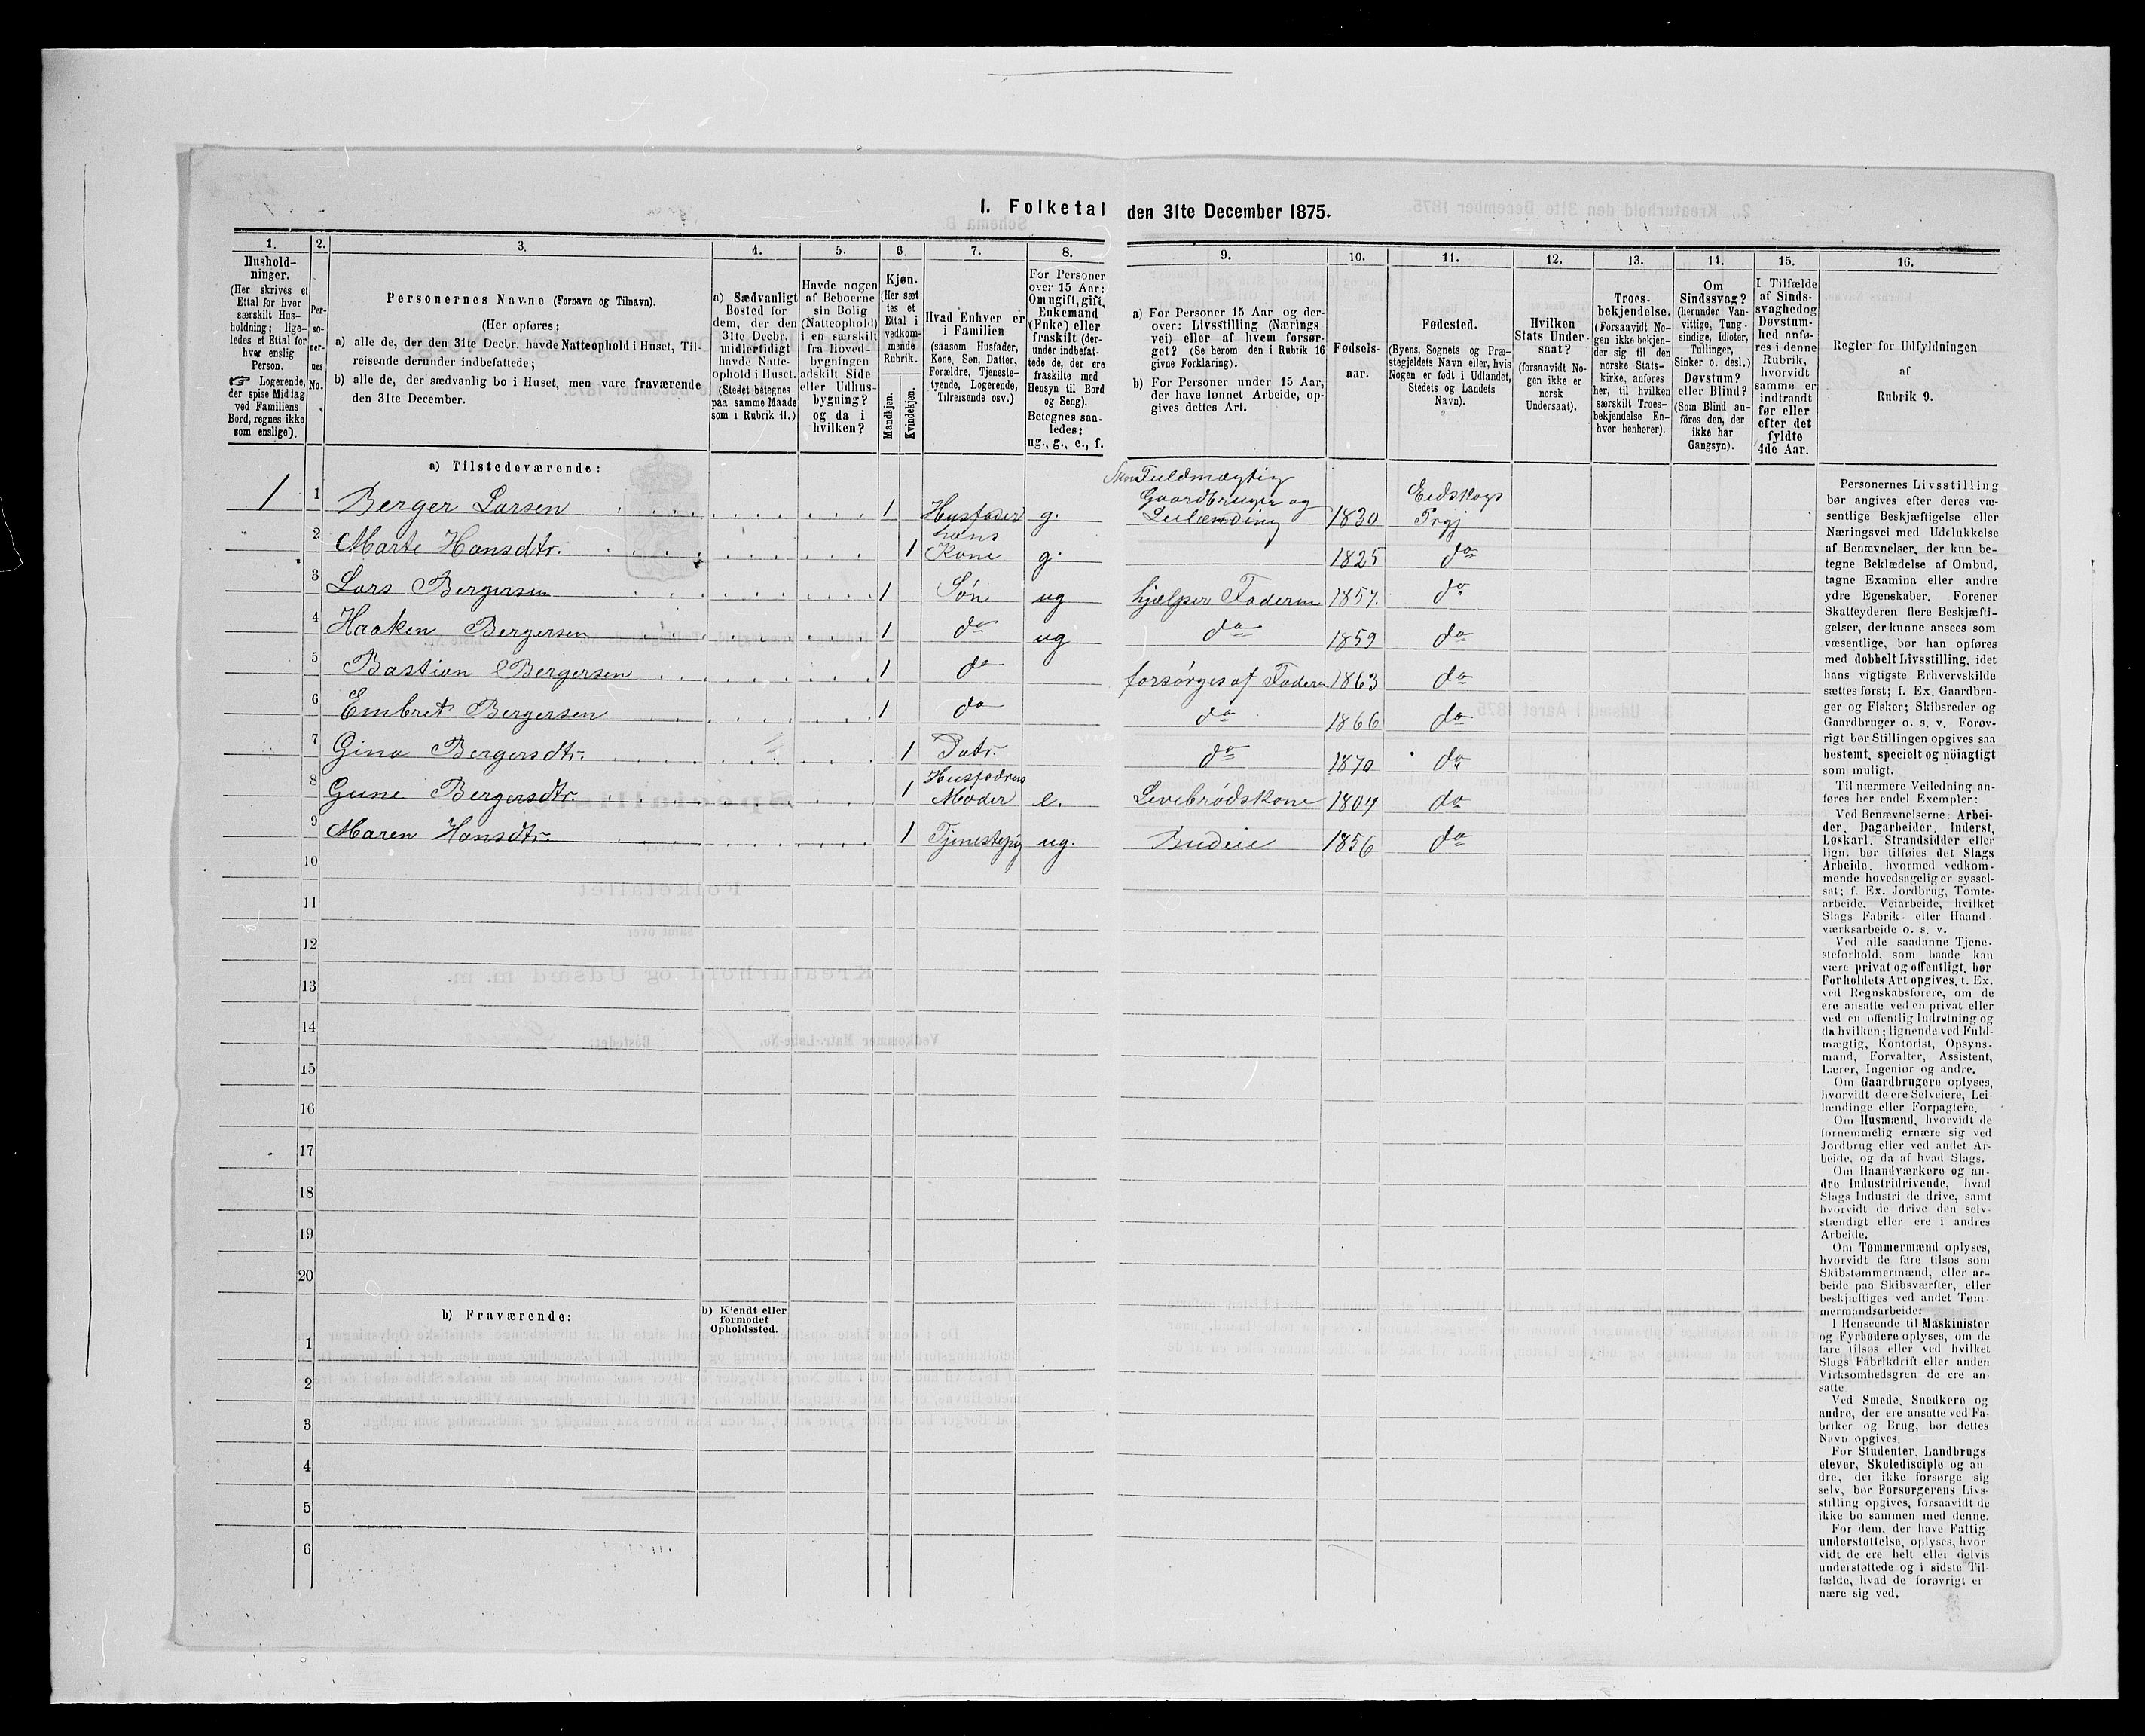 I. Folketal den 31te December 1875.
1. 2. 3. 4. 5. 6. 7. 8. 9. 10. 11. 12. 13. 14. 15. 16.
Hushold-
ninger.
(Her skrives et
Ettal for hver
særskilt Hus-
holdning; lige-
ledes et Ettal for
hver enslig
Person.
☞ Logerende,
der spise Middag
ved Familiens
Bord, regnes ikke
som enslige).
Per-
so-
ner-
nes
No.
Personernes Navne (Fornavn og Tilnavn).
(Her opføres:
a) alle de, der den 31te Decbr. havde Natteophold i Huset, Til-
reisende derunder indbefattede;
b) alle de, der sædvanlig bo i Huset, men vare fraværende
den 31te December.
a) Sædvanligt
Bosted for
dem, der den
31te Decbr.
midlertidigt
havde Natte-
ophold i Huset.
(Stedet betegnes
paa samme Maade
som i Rubrik 11.)
Havde nogen
af Beboerne
sin Bolig
(Natteophold)
i en særskilt
fra Hoved-
bygningen
adskilt Side
eller Udhus-
bygning?
og da i
hvilken?
Kjøn.
(Her sæt
tes et
Ettal i
vedkom-
mende
Rubrik.
Mandkjøn.
Kvindekjøn.
Hvad Enhver er
i Familien
(saasom Husfader,
Kone, Søn, Datter,
Forældre, Tjeneste-
tyende, Logerende,
Tilreisende osv.)
For Personer
over 15 Aar:
Om ugift, gift,
Enkemand
(Enke) eller
fraskilt (der-
under indbefat-
tede de, der ere
fraskilte med
Hensyn til Bord
og Seng).
Betegnes saa-
ledes:
ug., g., e., f.
a) For Personer 15 Aar og der-
over: Livsstilling (Nærings
vei) eller af hvem forsør-
get? (Se herom den i Rubrik 16
givne Forklaring).
b) For Personer under 15 Aar,
der have lønnet Arbeide, op-
gives dettes Art.
Fødsels-
aar.
Fødested.
(Byens, Sognets og Præ-
stegjeldets Navn eller, hvis
Nogen er født i Udlandet,
Stedets og Landets
Navn).
Hvilken
Stats Under-
saat?
(forsaavidt No-
gen ikke er
norsk
Undersaat).
Troes-
bekjendelse.
(Forsaavidt No-
gen ikke bekjen-
der sig til den
norske Stats-
kirke, anføres
her, til hvilken
særskilt Troes-
bekjendelse En-
hver henhører).
Om
Sindssvag?
(herunder Van-
vittige, Tung-
sindige, Idioter,
Tullinger,
Sinker o. desl.)
Døvstum?
eller Blind?
(Som Blind an-
føres den, der
ikke har
Gangsyn).
I Tilfælde
af Sinds-
svaghed og
Døvstum-
hed anfø-
res i denne
Rubrik,
hvorvidt
samme er
indtraadt
før eller
efter det
fyldte
4de Aar.
Regler for Udfyldningen
af
Rubrik 9.
a) Tilstedeværende:
Fuldmægtig
1 1 Berger Larsen 1 Husfader g. Gaardbruger og Leilænding 1830 Eidskogs Prgj
2 Marte Hansdtr. 1 hans Kone g. 1825 do
3 Lars Bergersen 1 Søn ug hjælper Faderen 1857. do
4 Haaken Bergersen 1 do ug do 1859 do
5 Bastian Bergersen 1 do forsørges af Faderen 1863 do
6 Embret Bergersen 1 do do 1866 do
7 Gina Bergersdtr. 1 Datr. do 1870 do
8 Gune Bergersdtr. 1 Husfadrens Moder e. Levebrødskone 1804 do
9 Maren Hansdtr. 1 Tjenestepig ug. Budeie 1856 do
10
11
12
13
14
15
16
17
18
19
20
b) Fraværende:
b) Kjendt eller
formodet
Opholdssted.
1
2
3
4
5
6
Personernes Livsstilling
bør angives efter deres væ-
sentlige Beskjæftigelse eller
Næringsvei med Udelukkelse
af Benævnelser, der kun be-
tegne Beklædelse af Ombud,
tagne Examina eller andre
ydre Egenskaber. Forener
Skatteyderen flere Beskjæfti-
gelser, der kunne ansees som
væsentlige, bør han opføres
med dobbelt Livsstilling, idet
hans vigtigste Erhvervskilde
sættes først; f. Ex. Gaardbru-
ger og Fisker; Skibsreder og
Gaardbruger o. s. v. Forøv-
rigt bør Stillingen opgives saa
bestemt, specielt og nöiagtigt
som muligt.
Til nærmere Veiledning an-
føres her endel Exempler:
Ved Benævnelserne: Arbei-
der, Dagarbeider, Inderst,
Løskarl, Strandsidder eller
lign. bør tilføies det Slags
Arbeide, hvormed vedkom-
mende hovedsagelig er syssel-
sat; f. Ex. Jordbrug, Tomte-
arbeide, Veiarbeide, hvilket
Slags Fabrik- eller Haand-
værksarbeide o. s. v.
Ved alle saadanne Tjene-
steforhold, som baade kan
være privat og offentligt, bør
Forholdets Art opgives, t. Ex.
ved Regnskabsførere, om de
ere ansatte ved en privat eller
ved en offentlig Indretning og
da hvilken; lignende ved Fuld-
mægtig, Kontorist, Opsyns-
mand, Forvalter, Assistent,
Lærer, Ingeniør og andre.
Om Gaardbrugere oplyses,
hvorvidt de ere Selveiere, Lei-
lændinge eller Forpagtere.
Om Husmænd, hvorvidt de
fornemmelig ernære sig ved
Jordbrug eller ved andet Ar-
beide, og da af hvad Slags.
Om Haandværkere og an-
dre Industridrivende, hvad
Slags Industri de drive, samt
hvorvidt de drive den selv-
stændigt eller ere i andres
Arbeide.
Om Tømmermænd oplyses,
hvorvidt de fare tilsøs som
Skibstømmermænd, eller ar-
beide paa Skibsværfter, eller
beskjæftiges ved andet Tøm-
mermandsarbeide.
I Henseende til Maskinister
og Fyrbødere oplyses, om de
fare tilsøs eller ved hvilket
Slags Fabrikdrift eller anden
Virksomhedsgren de ere an-
satte.
Ved Smede, Snedkere og
andre, der ere ansatte ved Fa-
briker og Brug, bør dettes
Navn opgives.
For Studenter, Landbrugs
elever, Skoledisciple og an
dre, der ikke forsørge sig
selv, bør Forsørgerens Livs-
stilling opgives, forsaavidt de
ikke bo sammen med denne.
For dem, der have Fattig-
understøttelse, oplyses, hvor
vidt de ere helt eller delvis
understøttede og i sidste Til-
fælde, hvad de forøvrigt er
nære sig ved.